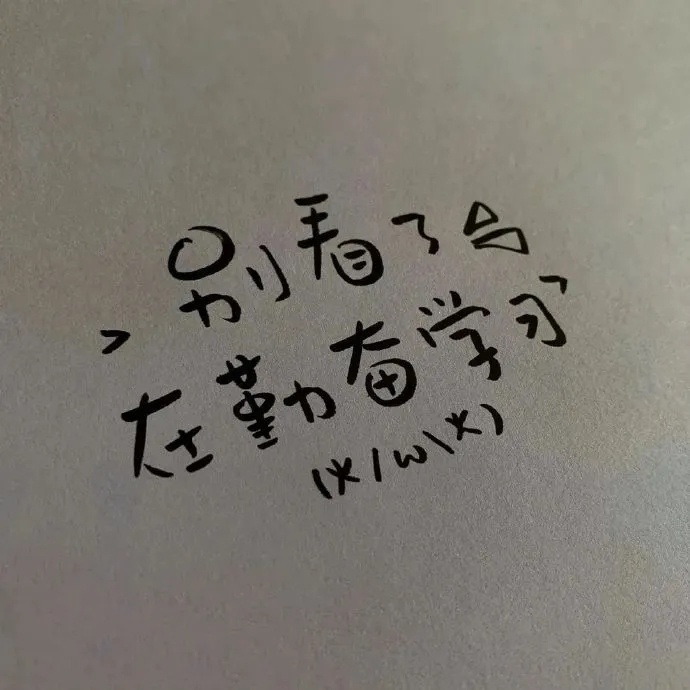 别看了
在勤奋学习
(*/ω\*)